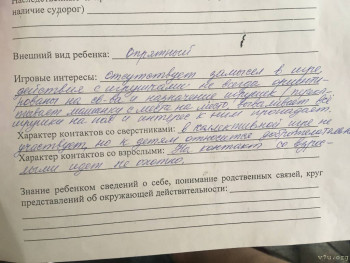 наличие судорог)
Внешний вид ребенка: Опрятный
Игровые интересы: Отсутствует замысел в игре,
действия с игрушками: Не всегда ориенти-
рованы на св-ва и назначение игрушек
машинки с места на место,
игрушки на пол и интерес к ним пропадает.
Характер контактов со сверстниками: в коллективной игре не
участвует, но к детям относится доброжелательно
Характер контактов со взрослыми: На контакт со взрос-
лыми идет не охотно.
Знание ребенком сведений о себе, понимание родственных связей, круг
представлений об окружающей действительности:
v7u.org